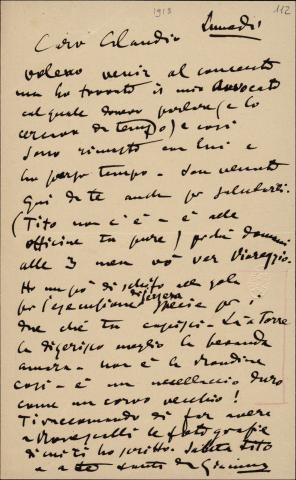 1918 112
Lunedì
Caro Claudio
volevo venir al concerto
ma ho trovato il mio Avvocato
col quale dovevo parlare (e lo
cercavo da tempo) e così
sono rimasto con lui e
ho perso tempo - Son venuto
qui da te anche per salutarti.
(Tito non c'è - è alle
officine tu pure) poiché domani
alle 3 men vò ver Viareggio.
Ho un pò di schifo alla gola
per l'esecuzione di iersera specie per i
due che tu capisci. La Torre
la digerisco meglio la bevanda
amara - non è la rondine
così - è un uccellaccio duro
come un corvo vecchio!
Ti raccomando di far avere
a le fotografie
di cui ti ho scritto. Saluta Tito
e a te dal tuo Giacomo